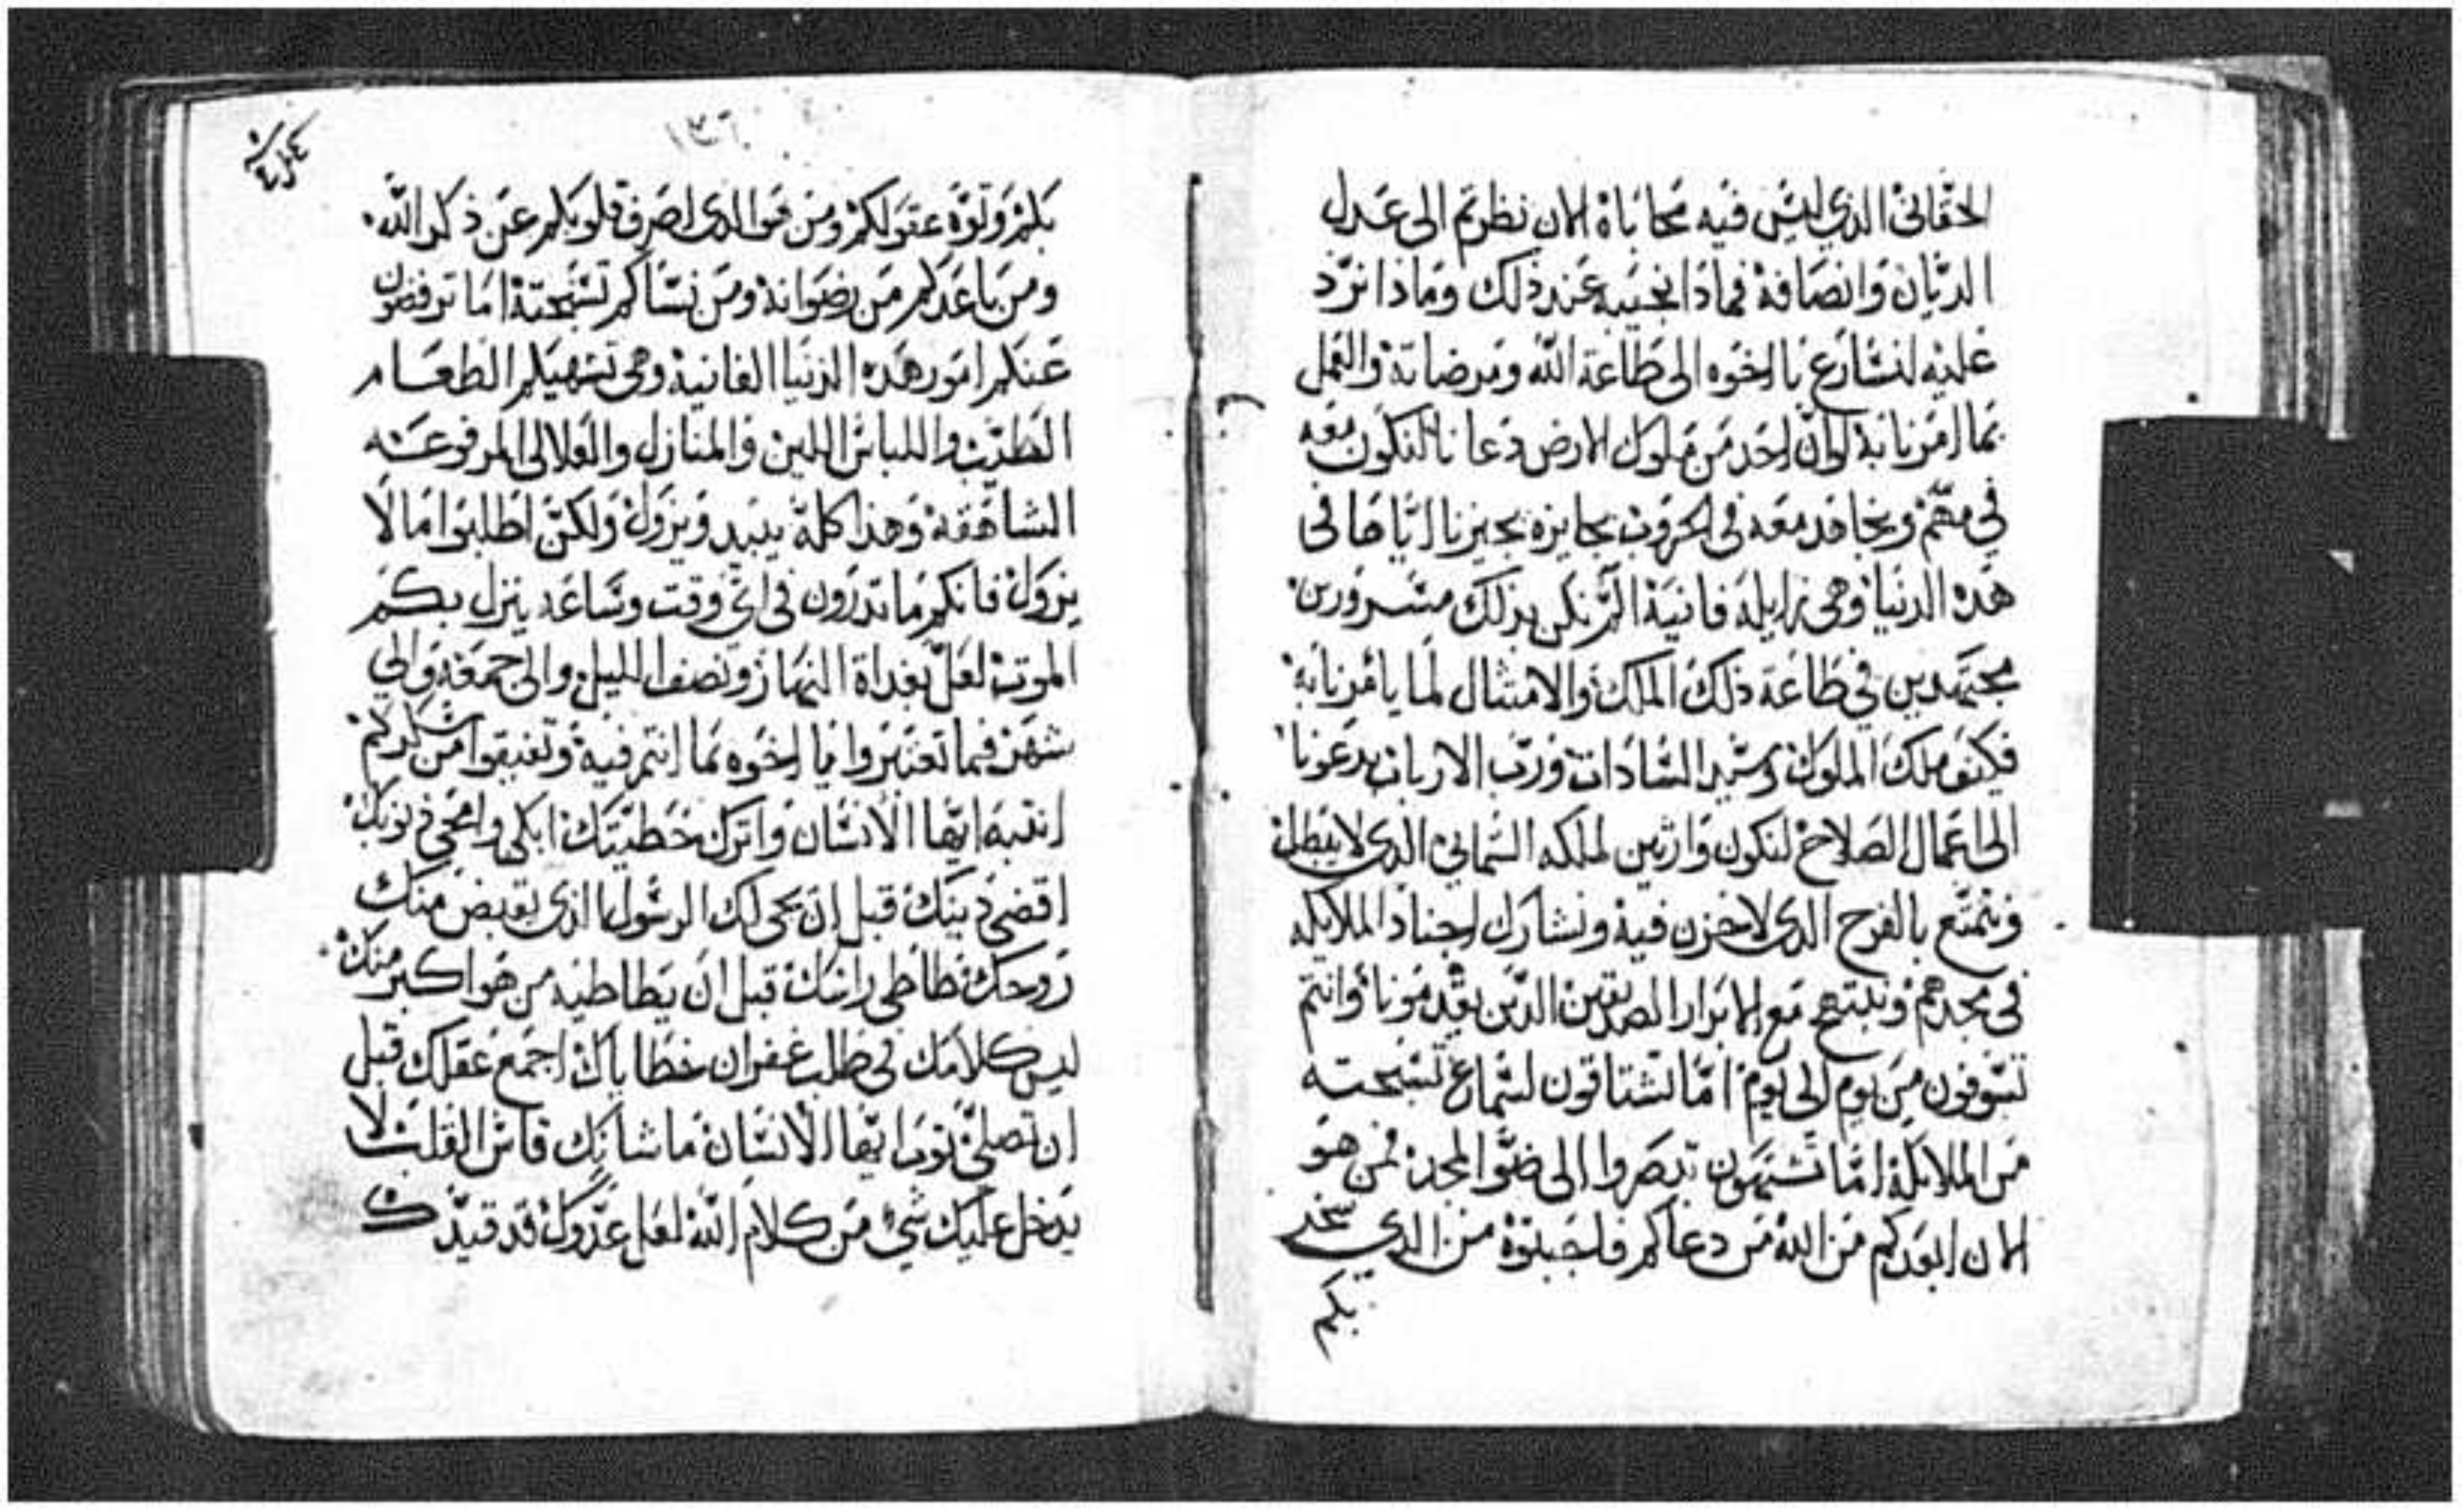 الحقاني الذي ليس فيه محاباة الان نظرتم الى عدل
الديان وانصافه فماذا نجيبه عند ذلك وماذا نرد
عليه لنسارع يا اخوه الى طاعة الله ومرضاته والعمل
بما امرنا به لو ان احد من ملوك الارض دعانا لنكون معه
في مهم ونجاهد معه في الحروب بجايزه يجيزنا اياها في
هذه الدنيا وهي زايله فانية الم نكن بذلك مسرورين
مجتهدين في طاعة ذلك الملك والامتثال لما يامرنا به
فكيف ملك الملوك وسيد السادات ورب الارباب يدعونا
الى اعمال الصلاح لنكون وارثين لملكه السمايي الذي لا يبطل
ونتمتع بالفرح الذي لا حزن فيه ونشارك اجناد الملايكه
في مجدهم ونبتهج مع الابرار الصديقين الذين يقدمونا وانتم
تسوفون من يوم الى يوم اما تشتاقون لسماع تسبحته
من الملايكه اما تشتهون تبصروا الى ضو المجد فمن هو
الان ابعدكم من الله من دعاكم فاجبتوه من الذي سخر
بكم
١٣٦
بكم وتوه عقولكم ومن هو الذي اصرف قلوبكم عن ذكر الله
ومن باعدكم من رضوانه ومن نساكم تسبحته اما ترفضون
عنكم امور هذه الدنيا الفانية وهي تشهيكم الطعام
الطيب واللباس اللين والمنازل والعلالي المرفوعه
الشاهقه وهذا كله يبيد ويزول ولكن اطلبوا ما لا
يزول فانكم ما تدرون في اي وقت وساعه ينزل بكم
الموت لعل بغداة النهار ونصف الليل والى جمعه والي
شهر فما تعتبروا يا اخوه بما انتم فيه وتفيقوا من سكركم
انتبه ايها الانسان واترك خطيتك ابكي وامحي ذنوبك
اقضي دينك قبل ان يجي لك الرسول الذي يقبض منك
روحك طاطي راسك قبل ان يطاطيه من هو اكبر منك
لين كلامك في طلب غفران خطاياك اجمع عقلك قبل
ان تصلي توب ايها الانسان ما شانك قاس القلب لا
يدخل عليك شي من كلام الله لعل عدوك قد قيدك